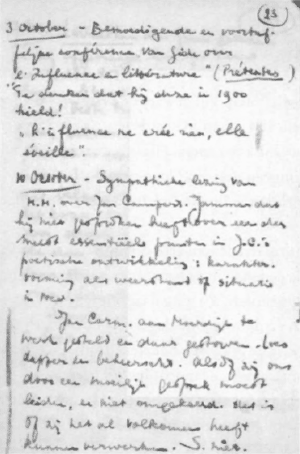 (23)
3 October - Bemoedigende en voortref-
felijke conférence van Gide over
"L'Influence en littérature" (Prétextes)
Te denken dat hij deze in 1900
hield!
"L'influence ne crée rien, elle
éveille".
10 October - Sympathieke lezing van
H.H. over Jan Campert. Jammer dat
hij niet gesproken heeft over een der
meest essentiële punten in J.C.'s
poëtische ontwikkeling: karakter-
vorming als weerstand of situatie
in
Jan Camp. aan Moerdijk te
werk gesteld en daar gestorven.
dapper en beheerscht. Alsof zij ons
door een moeilijk gesprek moest
leiden, en niet omgekeerd. Het is
of zij het al volkomen heeft
kunnen verwerken. S. niet.